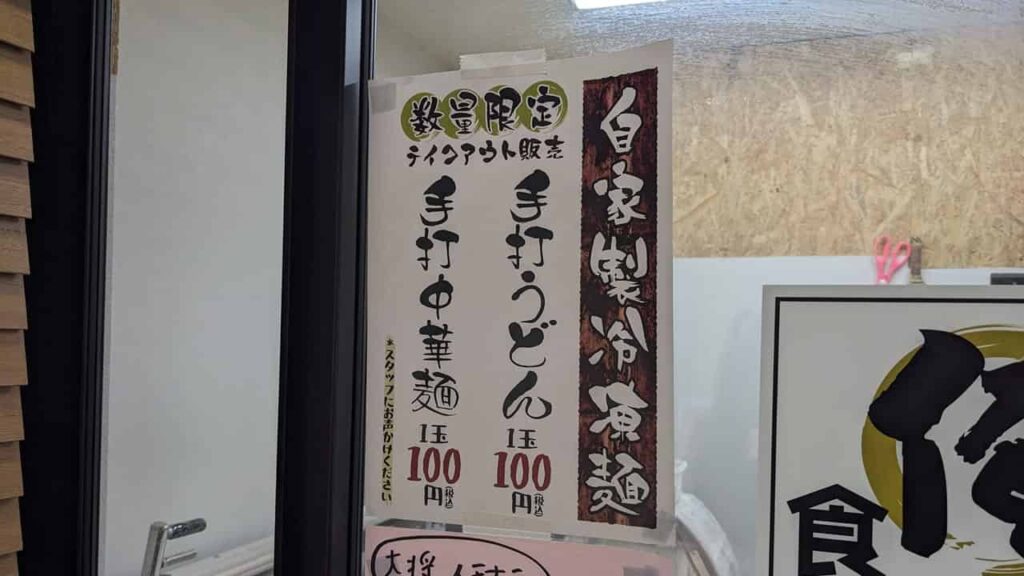 自家製冷凍麺
数量限定
テイクアウト販売
手打うどん
1玉
100
円(税込)
手打中華麺
1玉
100
円(税込)
*スタッフにお声かけください
大将
食